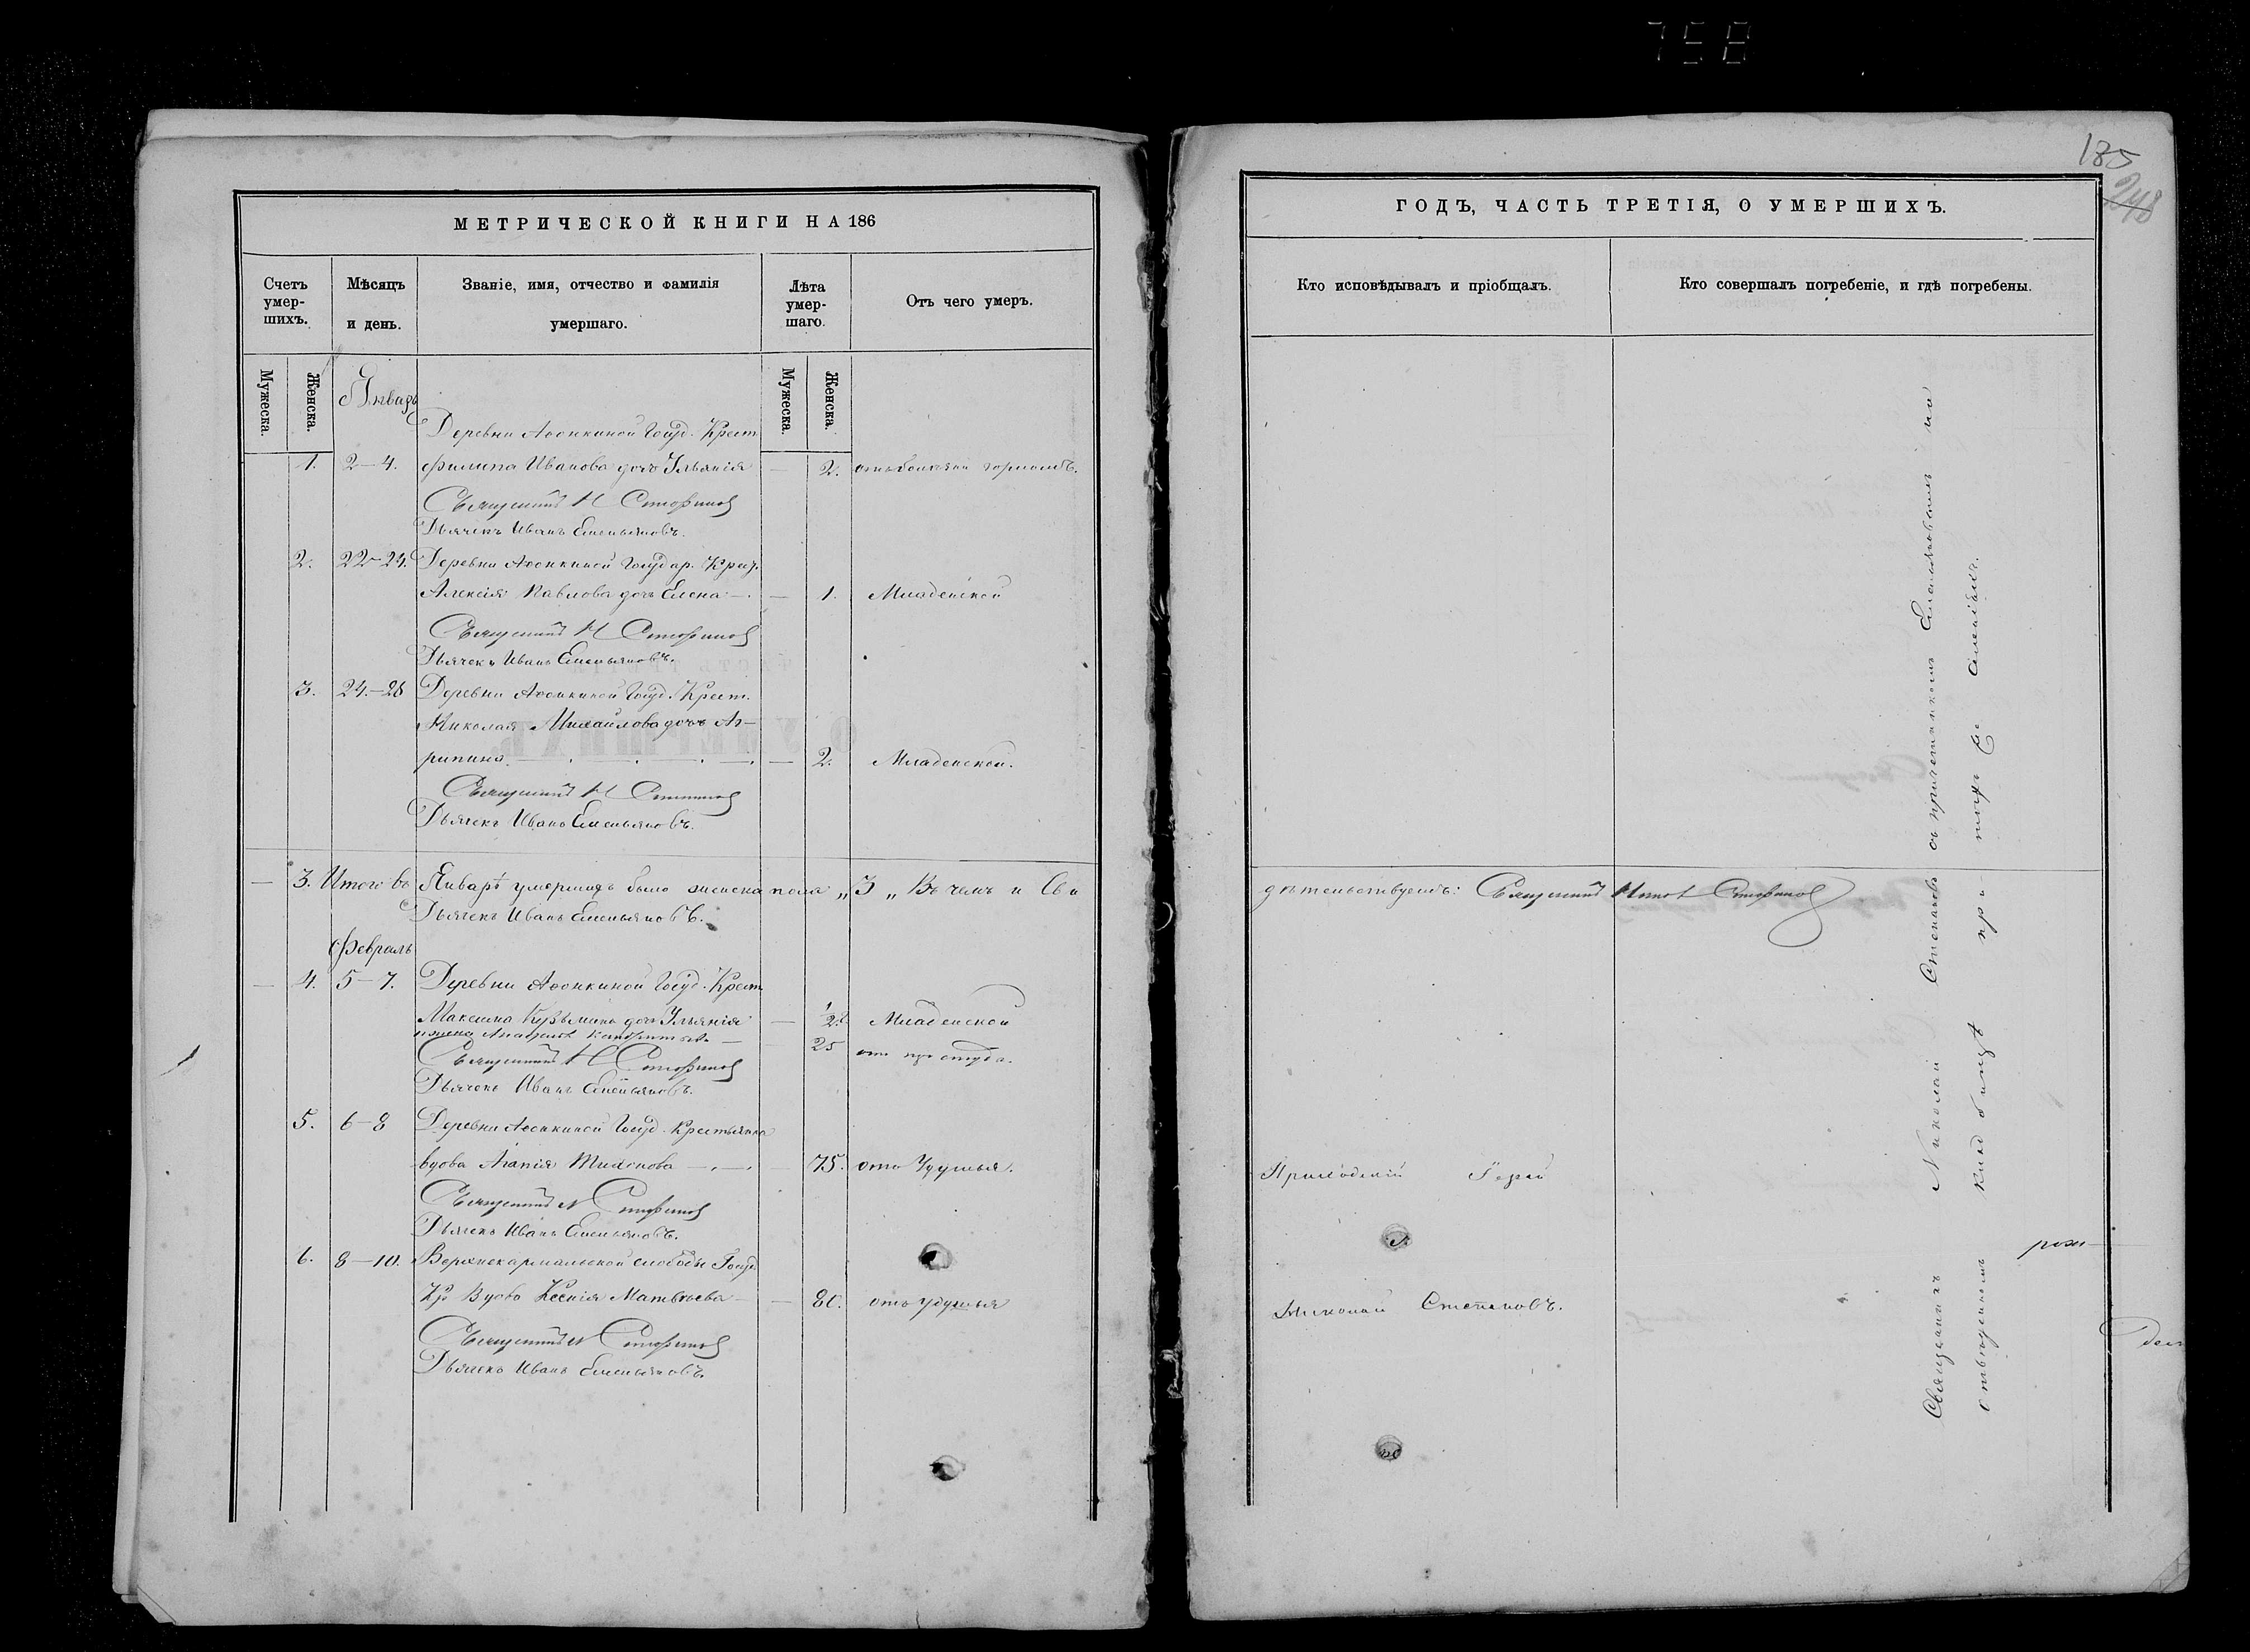 758
МЕТРИЧЕСКОЙ КНИГИ НА 186
Счетъ умер-шихъ.
Мѣсяцъ и день.
Званіе, имя, отчество и фамилія умершаго.
Лѣта умер-шаго.
Отъ чего умеръ.
Мужеска.
Женска.
Мужеска.
Женска.
Январь
Деревни Аѳонкиной Госуд. Крест.
1. 2–4. Филипа Иванова дочь Ульянія — 2.
Священникъ Н
Дьячекъ Иванъ Емельяновъ.
2. 22–24. Деревни Аѳонкиной Государ. Крес.
Алексія Павлова дочь Елена — 1. Младенской
Священникъ Н
Дьячекъ Иванъ Емельяновъ.
3. 24–28 Деревни Аѳонкиной Госуд. Крест.
Николая Михайлова дочь Аг-
рипина — 2. Младенской.
Священникъ Н
Дьячекъ Иванъ Емельяновъ.
— 3. Итого въ Январѣ умершихъ было женска пола „ 3 „ Въ чемъ и Сви
Дьячекъ Иванъ Емельяновъ.
Февраль
— 4. 5–7. Деревни Аѳонкиной Госуд. Крест.
Максима Кузьмина дочь Ульянія — Младенской
25 отъ простуды.
Священникъ Н
Дьячекъ Иванъ Емельяновъ.
5. 6–8 Деревни Аѳонкиной Госуд. Крестьянка
вдова Агапія Тихонова — 75. отъ Удушья.
Священникъ Н
Дьячекъ Иванъ Емельяновъ.
6. 8–10. Верхнекармальской слободы Госуд.
Кр Вдова Ксенія Матвѣева — 80. отъ удушья
Священникъ Н
Дьячекъ Иванъ Емельяновъ.
185
248
ГОДЪ, ЧАСТЬ ТРЕТІЯ, О УМЕРШИХЪ.
Кто исповѣдывалъ и пріобщалъ.
Кто совершалъ погребеніе, и гдѣ погребены.
дѣтельствуетъ: Священникъ
Приходскій Іерей
Николай Степановъ.
Священникъ Николай Степановъ съ причетникомъ Емельяновымъ на
отведенномъ кладбищѣ при